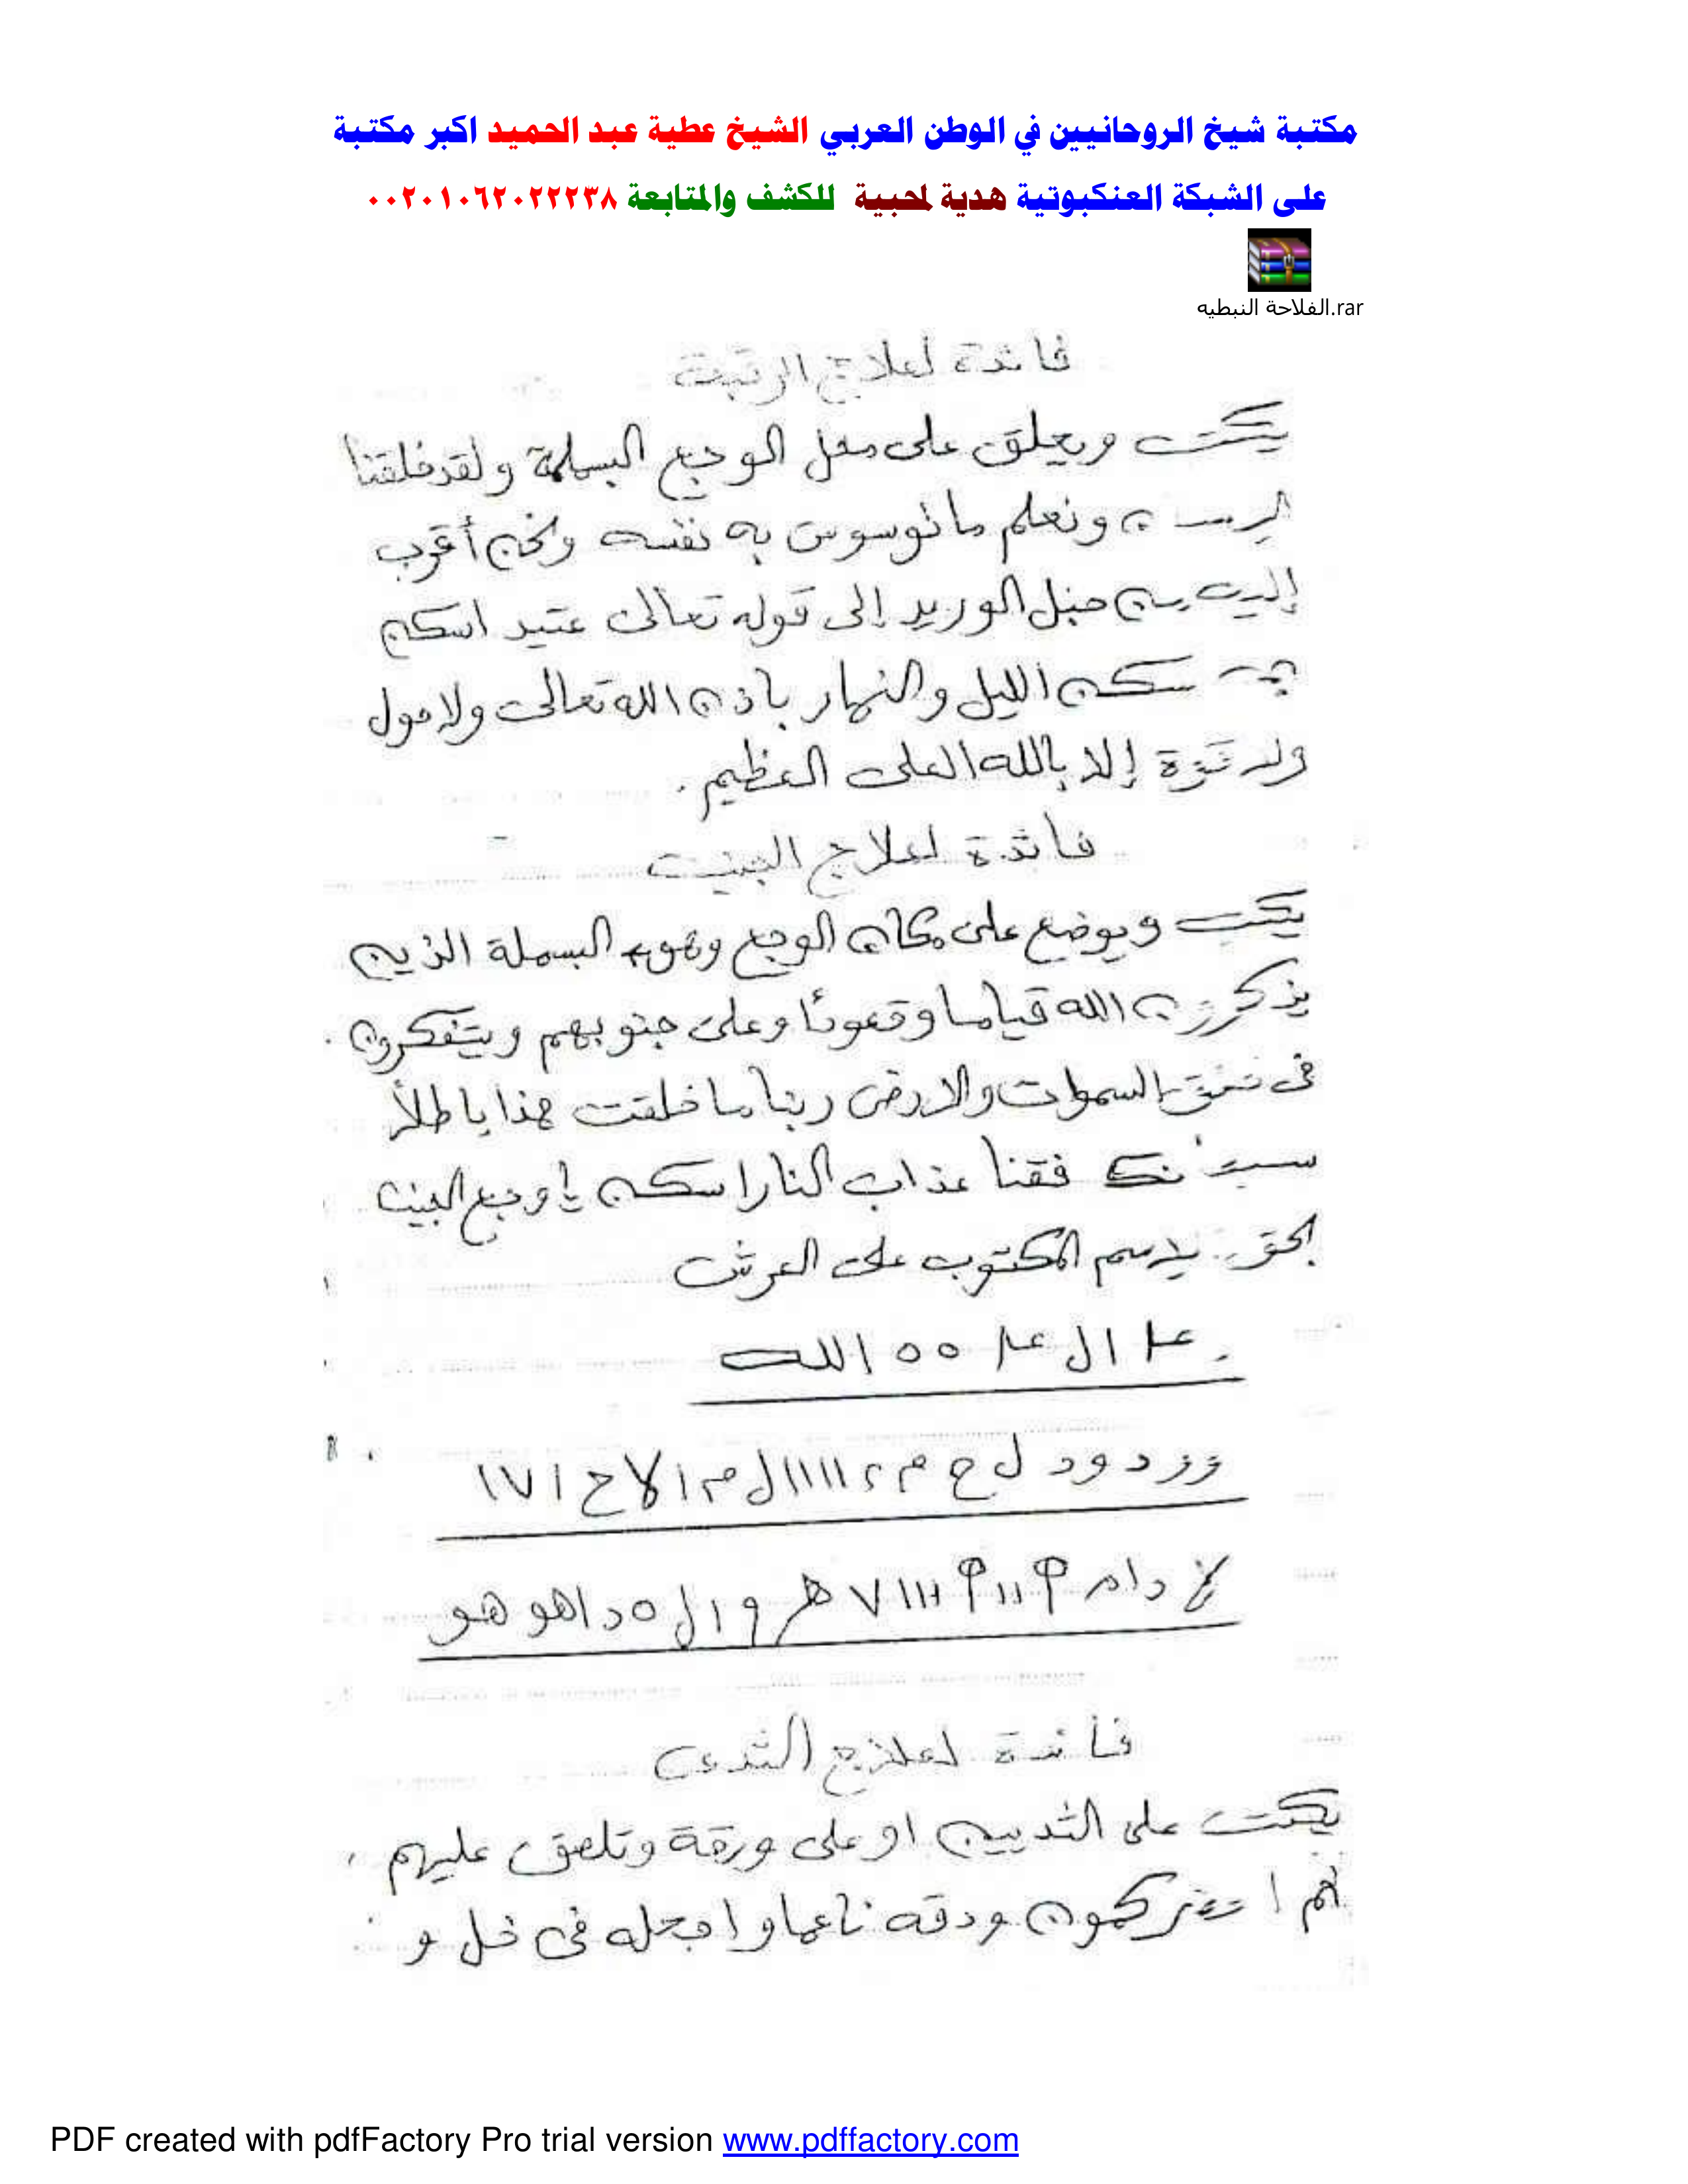 مكتبة شيخ الروحانيين في الوطن العربي الشيخ عطية عبد الحميد اكبر مكتبة
على الشبكة العنكبوتية هدية لمحبية للكشف والمتابعة ٠٠٢٠١٠٦٢٠٢٢٢٣٨
الفلاحة النبطيه.rar
فائدة لعلاج الرقبة
يكتب ويعلق على محل الوجع البسملة ولقد خلقنا
ونعلم ما توسوس به نفسه ونحن أقرب
إليه من حبل الوريد إلى قوله تعالى عتيد اسكن
سكن الليل والنهار باذن الله تعالى ولا حول
ولا قوة إلا بالله العلى العظيم .
فائدة لعلاج الجنب
يكتب ويوضع على مكان الوجع وهو البسملة الذين
يذكرون الله قياما وقعودًا وعلى جنوبهم ويتفكرون
فى خلق السموات والارض ربنا ما خلقت هذا باطلاً
سبحانك فقنا عذاب النار اسكن يا وجع الجنب
بحق الاسم المكتوب على العرش
ال ٥٥ الله
د و د ل ح م ٢ ١١١١ ل م ا لا ح ١٧١
دام ١١ ١١١ ٧ و ا ل ٥ د اهو هو
فائدة لعلاج الثدى
يكتب على الثديين او على ورقة وتلصق عليهم
ثم كمون ودقه ناعما واجعله فى خل و
PDF created with pdfFactory Pro trial version www.pdffactory.com